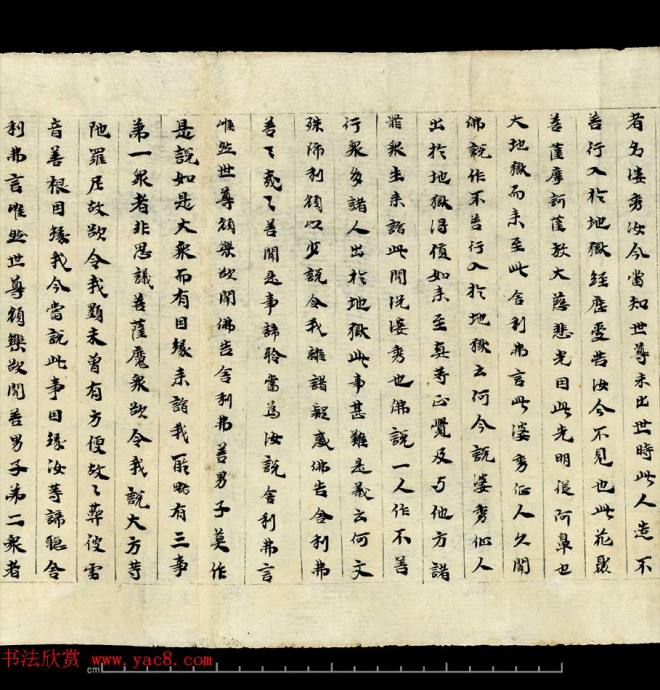 者名婆秀汝今當知世尊未出世時此人造不
善行入於地獄經歷受苦汝今不見也此花聚
菩薩摩訶薩教大慈悲光因此光明從阿鼻也
大地獄而來至此舍利弗言此婆秀仙人久聞
佛說作不善行入於地獄云何今說婆秀仙人
出於地獄得值如來至真等正覺及与他方諸
罪衆生来詣此間況婆秀也佛說一人作不善
行衆多諸人出於地獄此事甚難是義云何文
殊師利願以少說令我離諸疑惑佛告舍利弗
善〻哉〻善聞是事諦聆當為汝說舍利弗言
唯然世尊願樂欲聞佛告舍利弗善男子莫作
是說如是大衆而有因緣来詣我所略有三事
第一衆者非思議菩薩魔衆欲令我說大方等
陁羅尼故欲令我顯未曾有方便故〻葬彼雷
音善根因緣我今當說此事因緣汝等諦聽舍
利弗言唯然世尊願樂欲聞善男子第二衆者
书法欣赏 www.yac8.com
cm